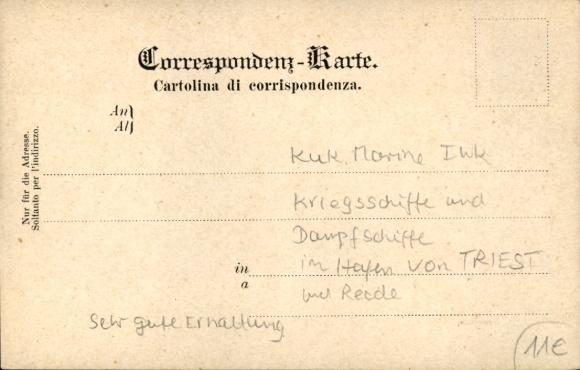 Correspondenz-Karte.
Cartolina di corrispondenza.
An
Al
Nur für die Adresse.
Soltanto per l'indirizzo.
KuK. Marine
Kriegsschiffe und
Dampfschiffe
in
im Hafen von TRIEST
a
und Reede
Sehr gute Erhaltung
11€